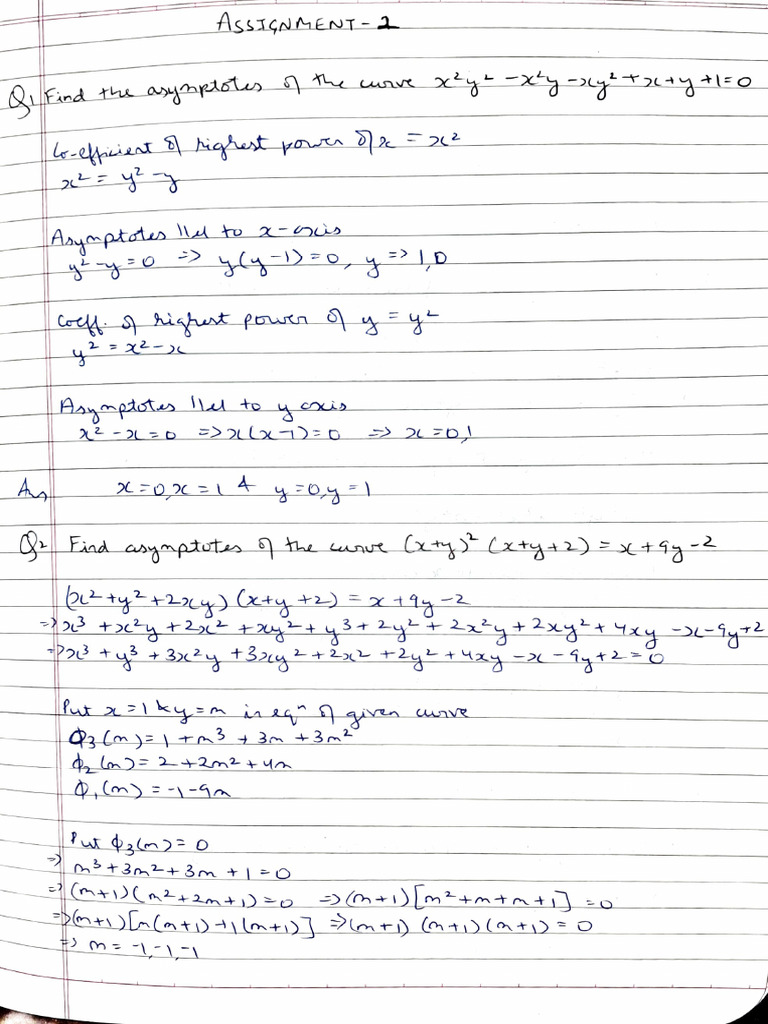 ASSIGNMENT-2
Q1 Find the asymptotes of the curve x²y² - x²y - xy² + x + y + 1 = 0
Co-efficient of highest power of x = x²
x² = y² - y
Asymptotes llel to x-axis
y² - y = 0 => y(y-1) = 0, y => 1,0
Coeff. of highest power of y = y²
y² = x² - x
Asymptotes llel to y axis
x² - x = 0 => x(x-1) = 0 => x = 0,1
Ans x = 0, x = 1 & y = 0, y = 1
Q2 Find asymptotes of the curve (x+y)² (x+y+2) = x + 9y - 2
(x² + y² + 2xy) (x+y+2) = x + 9y - 2
=> x³ + x²y + 2x² + xy² + y³ + 2y² + 2x²y + 2xy² + 4xy - x - 9y + 2
=> x³ + y³ + 3x²y + 3xy² + 2x² + 2y² + 4xy - x - 9y + 2 = 0
Put x = 1 & y = m in eqⁿ of given curve
Φ₃(m) = 1 + m³ + 3m + 3m²
Φ₂(m) = 2 + 2m² + 4m
Φ₁(m) = -1 - 9m
Put Φ₃(m) = 0
=> m³ + 3m² + 3m + 1 = 0
=> (m+1) (m² + 2m + 1) = 0 => (m+1) [m² + m + m + 1] = 0
=> (m+1) [m(m+1) + 1(m+1)] => (m+1) (m+1) (m+1) = 0
=> m = -1, -1, -1